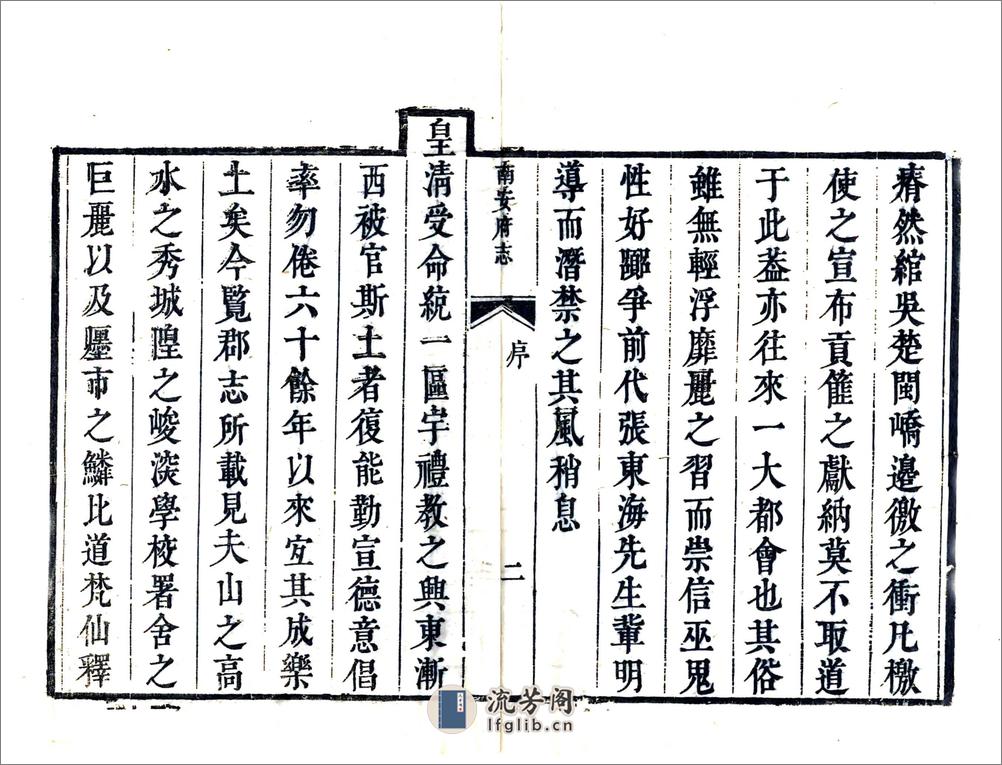 瘠然綰吳楚閩嶠邊徼之衝凡檄
使之宣布貢篚之獻納莫不取道
于此葢亦往來一大都會也其俗
雖無輕浮靡麗之習而崇信巫鬼
性好鬭爭前代張東海先生輩明
導而潛禁之其風稍息
南安府志
序
二
皇清受命統一區宇禮教之興東漸
西被官斯土者復能勤宣德意倡
率勿倦六十餘年以來宐其成樂
土矣今覽郡志所載見夫山之高
水之秀城隍之峻深學校署舍之
巨麗以及廛市之鱗比道梵仙釋
流芳阁
lfglib.cn